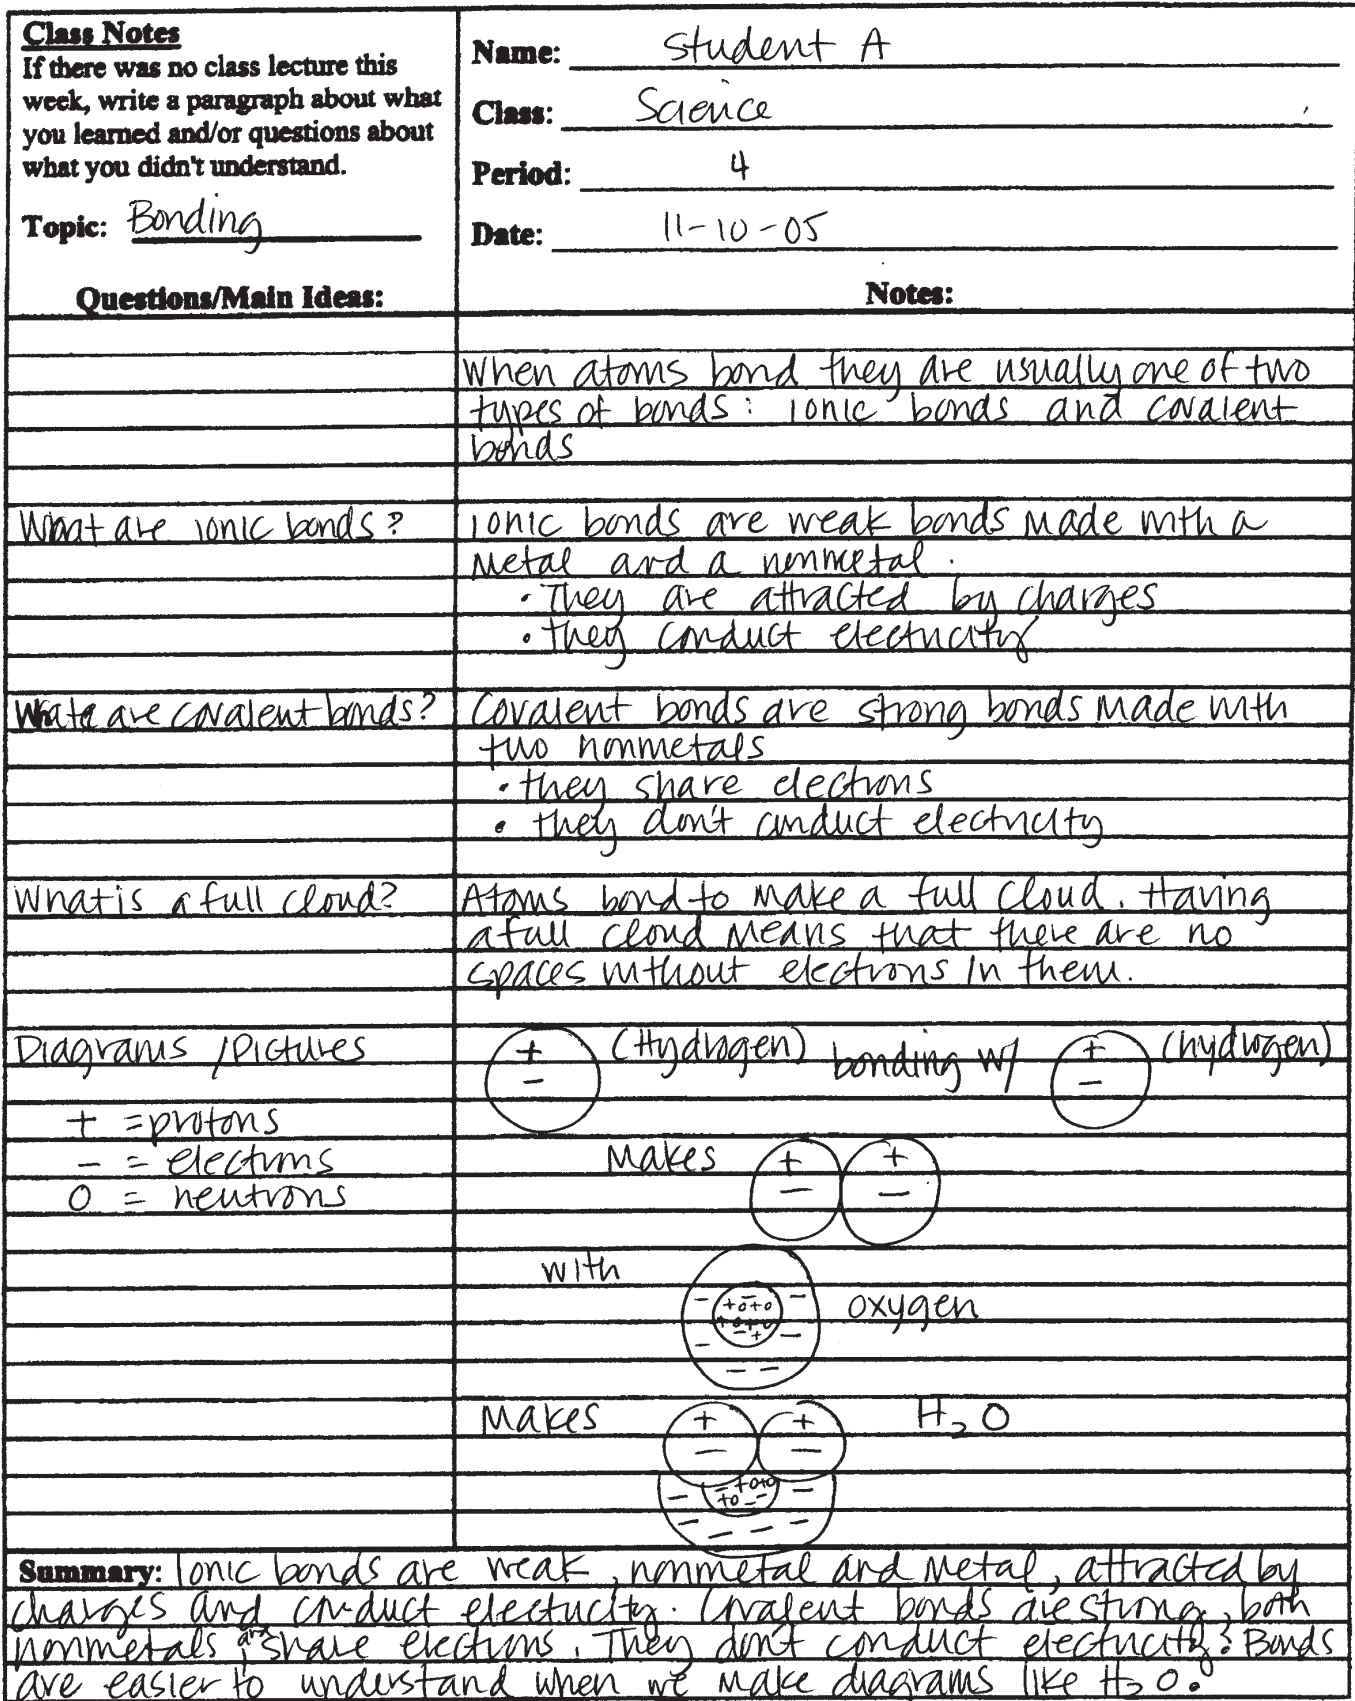 Class Notes
If there was no class lecture this
week, write a paragraph about what
you learned and/or questions about
what you didn't understand.
Topic: Bonding
Name: Student A
Class: Science
Period: 4
Date: 11-10-05
Questions/Main Ideas:
Notes:
When atoms bond they are usually one of two
types of bonds: ionic bonds and covalent
bonds
What are ionic bonds?
Ionic bonds are weak bonds made with a
metal and a nonmetal.
• They are attracted by charges
• they conduct electricity
What are covalent bonds?
Covalent bonds are strong bonds made with
two nonmetals
• they share electrons
• they don't conduct electricity
What is a full cloud?
Atoms bond to make a full cloud. Having
a full cloud means that there are no
spaces without electrons in them.
Diagrams / Pictures
+ = protons
- = electrons
0 = neutrons
+ - (Hydrogen) bonding w/ + - (hydrogen)
Makes + - + -
with
oxygen
Makes + - + - H₂O
Summary: Ionic bonds are weak, nonmetal and metal, attracted by
charges and conduct electricity. Covalent bonds are strong, both
nonmetals, and share electrons. They don't conduct electricity. Bonds
are easier to understand when we make diagrams like H₂O.